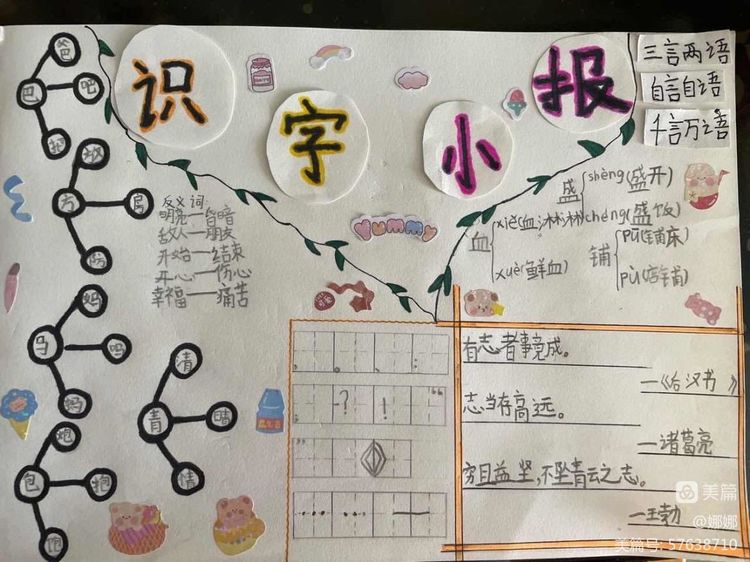 识字小报
三言两语
自言自语
千言万语
爸
巴
吧
方
反义词
明亮——昏暗
敌人——朋友
开始——结束
开心——伤心
幸福——痛苦
盛
shèng(盛开)
chéng(盛饭)
血
xiě(血淋淋)
xuè(鲜血)
铺
pū(铺床)
pù(店铺)
yummy
妈
马
吗
清
青
晴
情
包
抱
饱
, 。 、 :
? ! “
”
有志者事竟成。
—《后汉书》
志当存高远。
—诸葛亮
穷且益坚,不坠青云之志。
—王勃
美篇
@娜娜
美篇号: 57638710